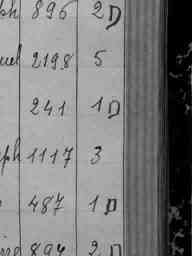 ph 896 2D
uel 2198 5
241 1D
ph 1117 3
487 1D